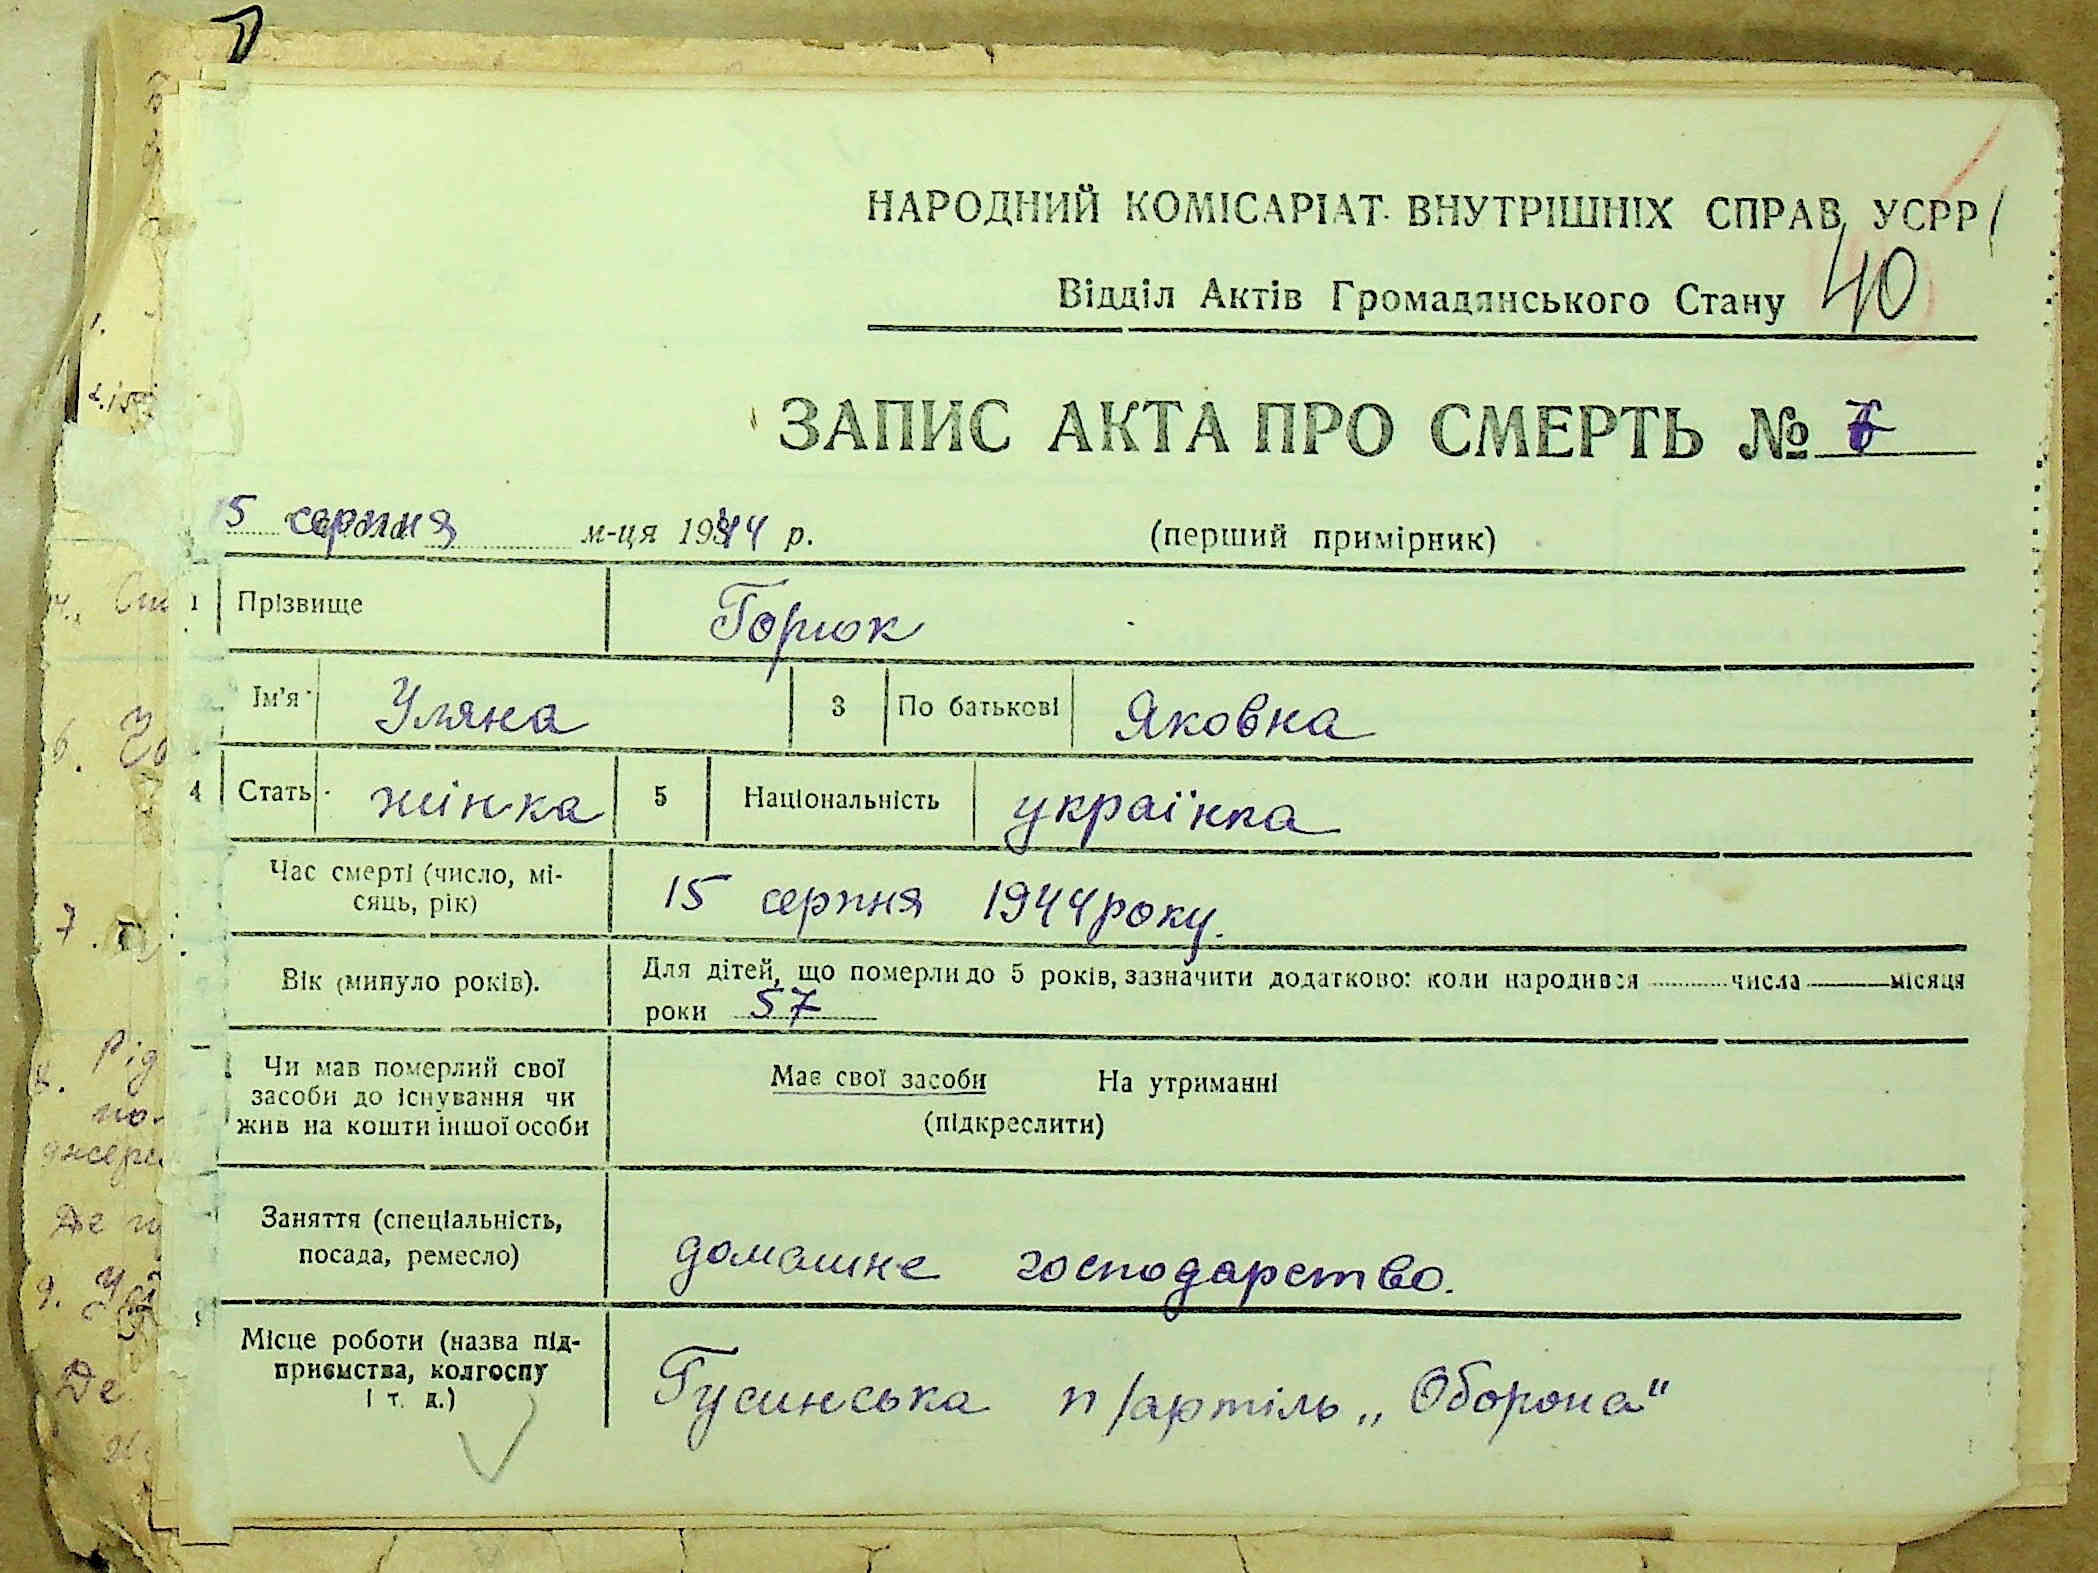 НАРОДНИЙ КОМІСАРІАТ ВНУТРІШНІХ СПРАВ УСРР
Відділ Актів Громадянського Стану
40
ЗАПИС АКТА ПРО СМЕРТЬ №
15 серпня м-ця 1944 р. (перший примірник)
1 Прізвище Горюк
Ім'я Уляна 3 По батькові Яковна
4 Стать жінка 5 Національність українка
Час смерті (число, мі-
сяць, рік) 15 серпня 1944 року.
Вік (минуло років). Для дітей, що померли до 5 років, зазначити додатково: коли народився числа місяця
роки 57
Чи мав померлий свої
засоби до існування чи
жив на кошти іншої особи
Має свої засоби На утриманні
(підкреслити)
Заняття (спеціальність,
посада, ремесло) домашнє господарство.
Місце роботи (назва під-
приємства, колгоспу
і т. д.) Гусинська п/артіль „Оборона"